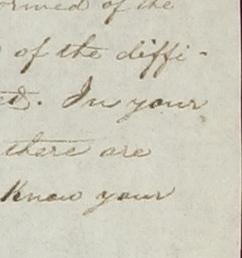 formed of the
of the diffi-
ed. In your
there are
Know your